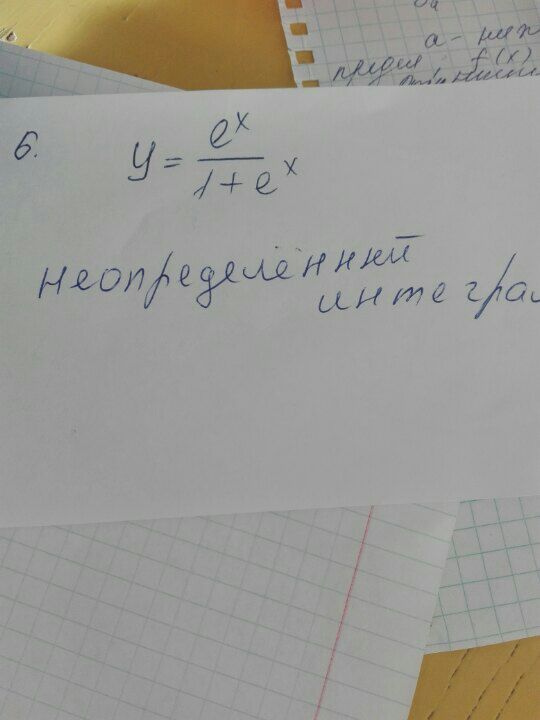 a -
предел f(x)
6. y = e^x / 1 + e^x
неопределённый
интеграл